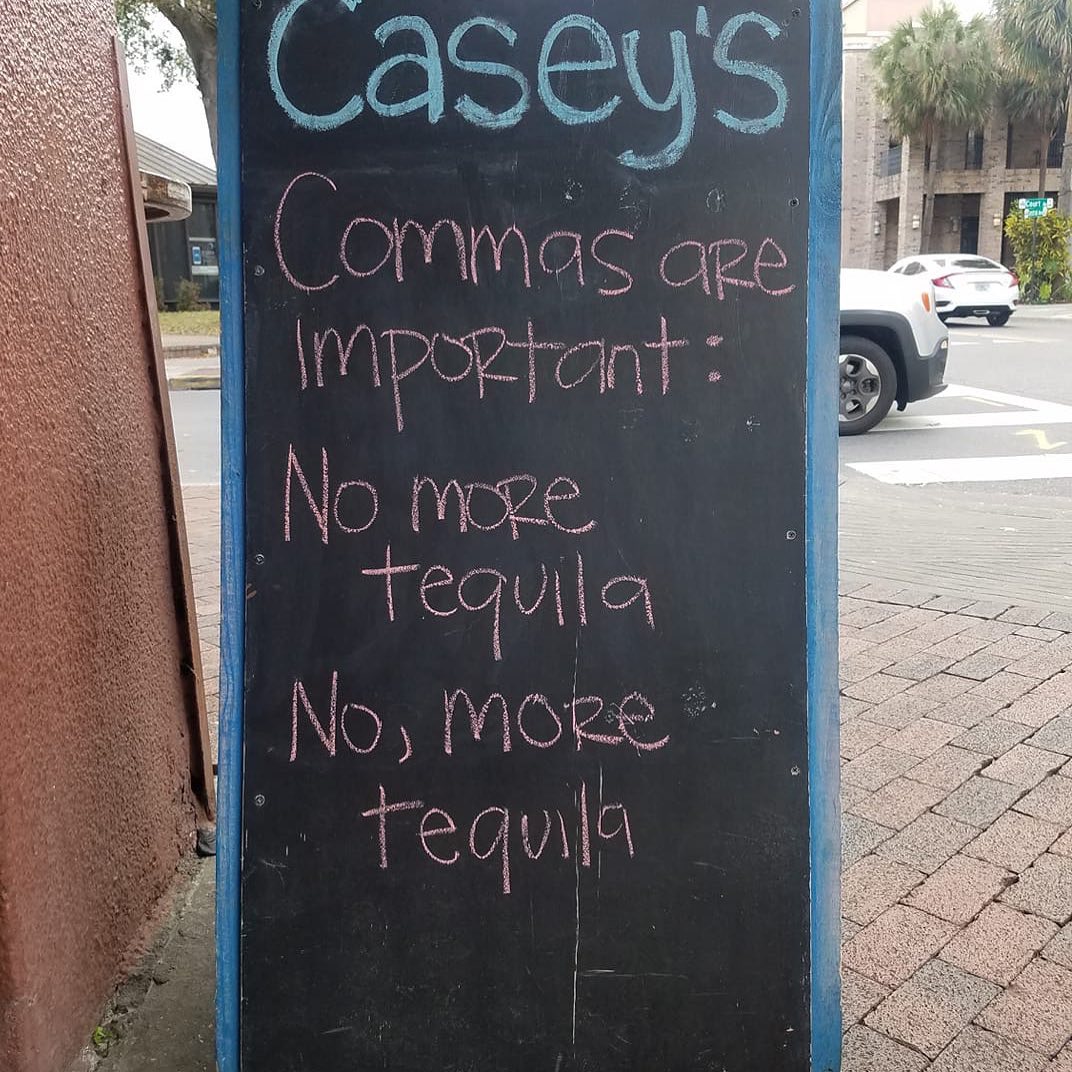 Casey's
Commas are
Important:
No more
tequila
No, more
tequila
Court